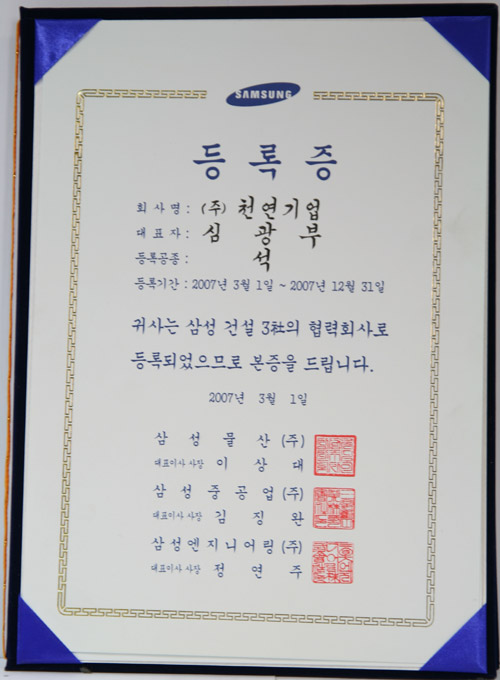 SAMSUNG
등록증
회사명 : (주) 천연기업
대표자 : 심 광 부
등록공종 : 석
등록기간 : 2007년 3월 1일 ~ 2007년 12월 31일
귀사는 삼성 건설 3社의 협력회사로
등록되었으므로 본증을 드립니다.
2007년 3월 1일
삼성물산(주)
대표이사 사장 이 상 대
삼성중공업(주)
대표이사 사장 김 징 완
삼성엔지니어링(주)
대표이사 사장 정 연 주